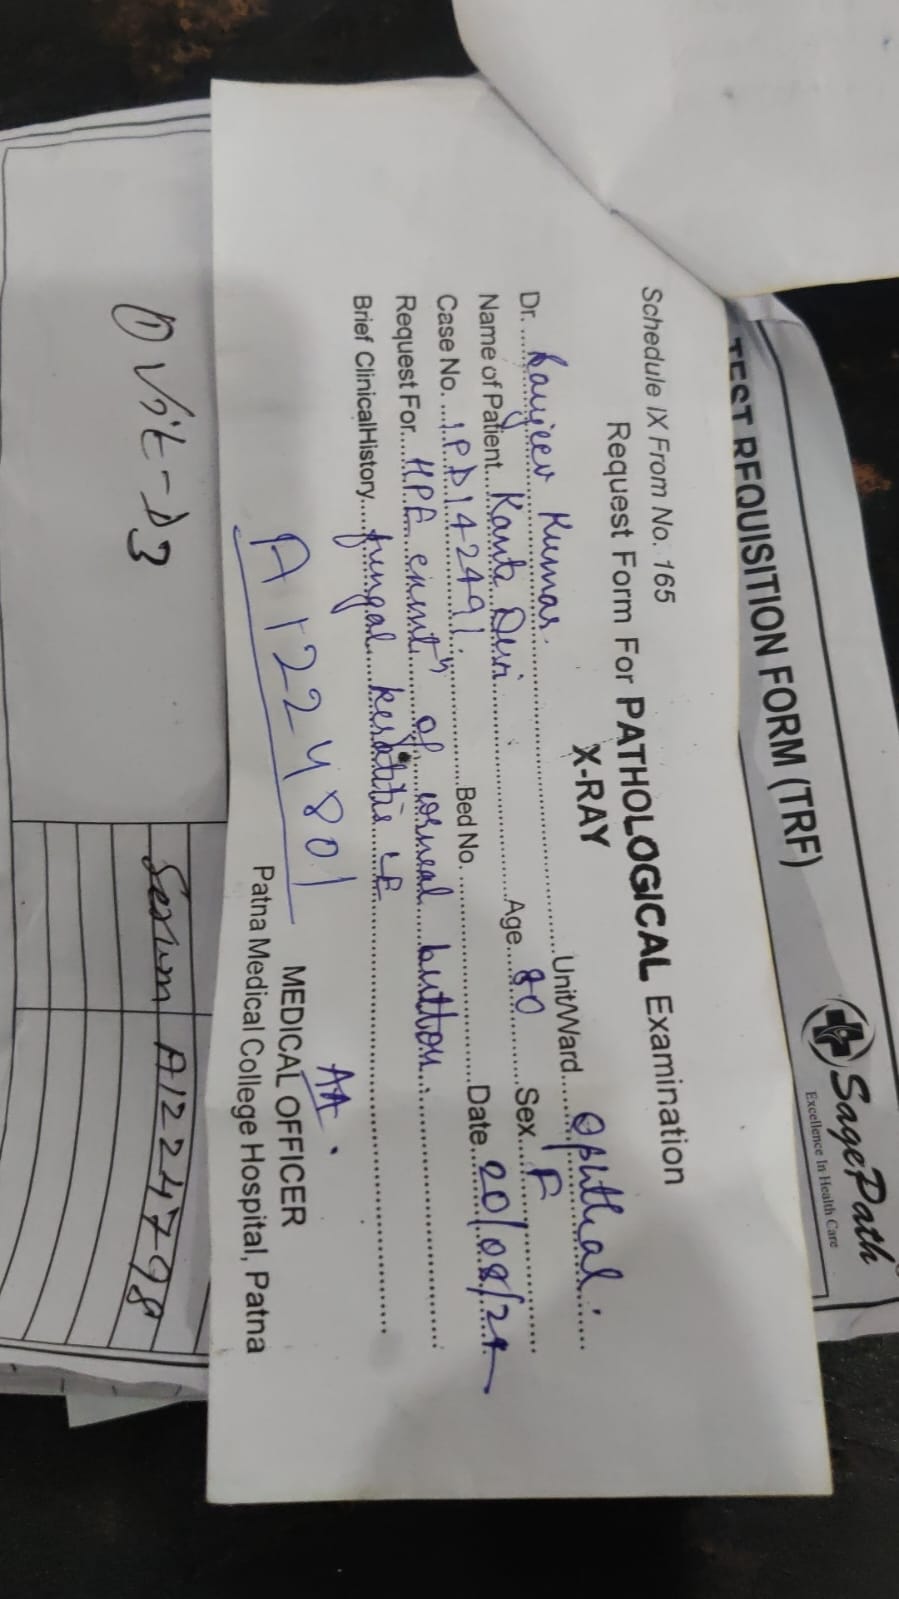 TEST REQUISITION FORM (TRF)
SagePath
Excellence In Health Care
Schedule IX From No. 165
Request Form For PATHOLOGICAL Examination
X-RAY
Dr. Sanjeev Kumar. Unit/Ward Ophthal.
Name of Patient Kanti Devi Age 80 Sex F
Case No. IPD142491. Bed No. Date 20/08/24
Request For HPE of corneal button.
Brief ClinicalHistory fungal keratitis LE
A1224801
MEDICAL OFFICER
Patna Medical College Hospital, Patna
① Vit-D3
Serum A1224798